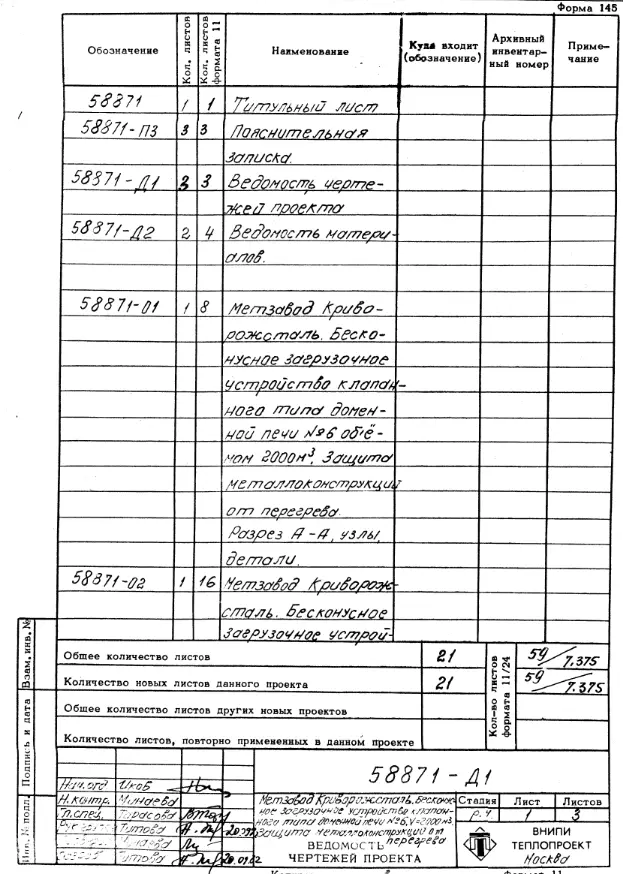 Форма 145
Обозначение
Кол. листов
Кол. листов формата 11
Наименование
Куда входит (обозначение)
Архивный инвентарный номер
Примечание
58871 1 1 Титульный лист
58871-ПЗ 3 3 Пояснительная
записка.
58871-Д1 3 3 Ведомость черте-
жей проекта
58871-Д2 2 4 Ведомость матери-
алов.
58871-01 1 8 Метзавод Криво-
рожсталь. Беско-
нусное загрузочное
устройство клапан-
ного типа домен-
ной печи №6 объё-
мом 2000м³. Защита
металлоконструкций
от перегрева.
Разрез А-А, узлы,
детали.
58871-02 1 16 Метзавод Криворож-
сталь. Бесконусное
загрузочное устрой-
Общее количество листов 21
Количество новых листов данного проекта 21
Общее количество листов других новых проектов
Количество листов, повторно примененных в данном проекте
Кол-во листов формата 11/24
59/7.375
59/7.375
Взам. инв. №
Подпись и дата
Инв. № подл.
58871-Д1
Нач. отд Икоб
Н. контр. Минаева
Гл. спец. Тарасова
Титова
Титова 20.01.82
Метзавод Криворожсталь. Бесконус-
ное загрузочное устройство клапан-
ного типа доменной печи №6, V=2000м³.
Защита металлоконструкций от
перегрева
ВЕДОМОСТЬ
ЧЕРТЕЖЕЙ ПРОЕКТА
Стадия Лист Листов
р.ч 1 3
ВНИПИ
ТЕПЛОПРОЕКТ
Москва